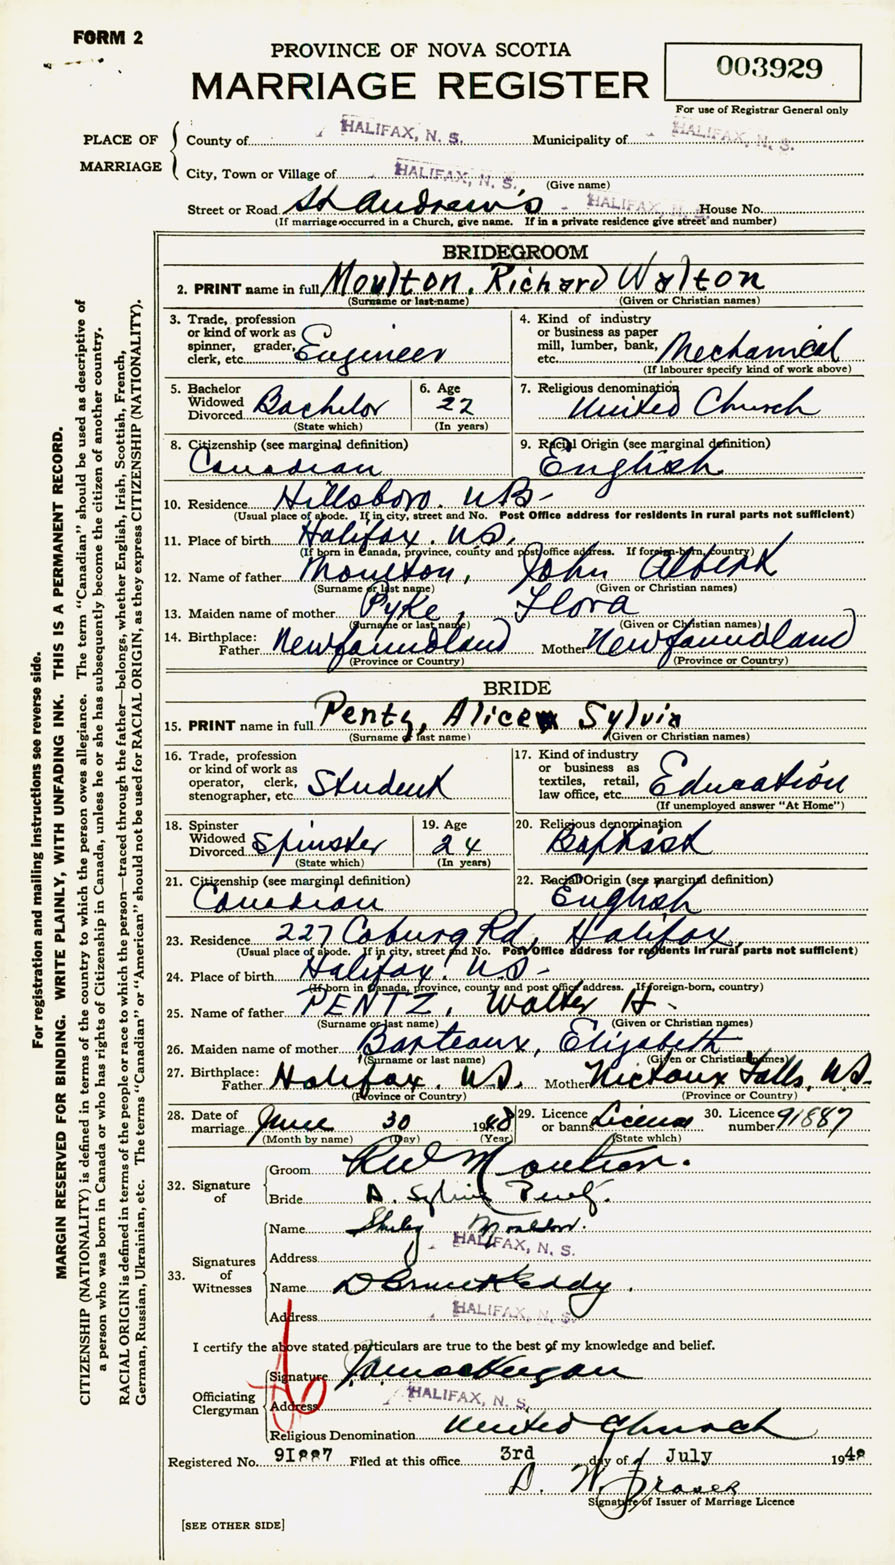 FORM 2
PROVINCE OF NOVA SCOTIA
MARRIAGE REGISTER
003929
For use of Registrar General only
PLACE OF MARRIAGE
County of HALIFAX, N. S. Municipality of HALIFAX, N. S.
City, Town or Village of HALIFAX, N. S.
(Give name)
Street or Road St Andrew's HALIFAX, N. S. House No.
(If marriage occurred in a Church, give name. If in a private residence give street and number)
BRIDEGROOM
2. PRINT name in full Moulton, Richard Walton
(Surname or last-name) (Given or Christian names)
3. Trade, profession or kind of work as spinner, grader, clerk, etc. Engineer
4. Kind of industry or business as paper mill, lumber, bank, etc. Mechanical
(If labourer specify kind of work above)
5. Bachelor Widowed Divorced Bachelor
(State which)
6. Age 22
(In years)
7. Religious denomination United Church
8. Citizenship (see marginal definition) Canadian
9. Racial Origin (see marginal definition) English
10. Residence Hillsboro. NB-
(Usual place of abode. If in city, street and No. Post Office address for residents in rural parts not sufficient)
11. Place of birth Halifax. NS.
(If born in Canada, province, county and post office address. If foreign-born, country)
12. Name of father Moulton, John Albert
(Surname or last name) (Given or Christian names)
13. Maiden name of mother Pyke, Flora
(Surname or last name) (Given or Christian names)
14. Birthplace: Father Newfoundland Mother Newfoundland
(Province or Country) (Province or Country)
BRIDE
15. PRINT name in full Pentz, Alice Sylvia
(Surname or last name) (Given or Christian names)
16. Trade, profession or kind of work as operator, clerk, stenographer, etc. Student
17. Kind of industry or business as textiles, retail, law office, etc. Education
(If unemployed answer "At Home")
18. Spinster Widowed Divorced Spinster
(State which)
19. Age 24
(In years)
20. Religious denomination Baptist
21. Citizenship (see marginal definition) Canadian
22. Racial Origin (see marginal definition) English
23. Residence 227 Coburg Rd, Halifax,
(Usual place of abode. If in city, street and No. Post Office address for residents in rural parts not sufficient)
24. Place of birth Halifax. NS-
(If born in Canada, province, county and post office address. If foreign-born, country)
25. Name of father PENTZ, Walter H-
(Surname or last name) (Given or Christian names)
26. Maiden name of mother Barteaux, Elizabeth
(Surname or last name) (Given or Christian names)
27. Birthplace: Father Halifax. NS. Mother Nictaux Falls, NS-
(Province or Country) (Province or Country)
28. Date of marriage June 30 1948
(Month by name) (Day) (Year)
29. Licence or banns License
(State which)
30. Licence number 91887
32. Signature of
Groom R W Moulton.
Bride A. Sylvia Pentz.
33. Signatures of Witnesses
Name Moulton.
Address HALIFAX, N. S.
Name D Bruce Keddy.
Address HALIFAX, N. S.
I certify the above stated particulars are true to the best of my knowledge and belief.
Officiating Clergyman
Signature
Address HALIFAX, N. S.
Religious Denomination United Church
Registered No. 91887 Filed at this office 3rd day of July 1948
D. W. Fraser
Signature of Issuer of Marriage Licence
[SEE OTHER SIDE]
For registration and mailing instructions see reverse side.
MARGIN RESERVED FOR BINDING. WRITE PLAINLY, WITH UNFADING INK. THIS IS A PERMANENT RECORD.
CITIZENSHIP (NATIONALITY) is defined in terms of the country to which the person owes allegiance. The term "Canadian" should be used as descriptive of
a person who was born in Canada or who has rights of Citizenship in Canada, unless he or she has subsequently become the citizen of another country.
RACIAL ORIGIN is defined in terms of the people or race to which the person—traced through the father—belongs, whether English, Irish, Scottish, French,
German, Russian, Ukrainian, etc. The terms "Canadian" or "American" should not be used for RACIAL ORIGIN, as they express CITIZENSHIP (NATIONALITY).